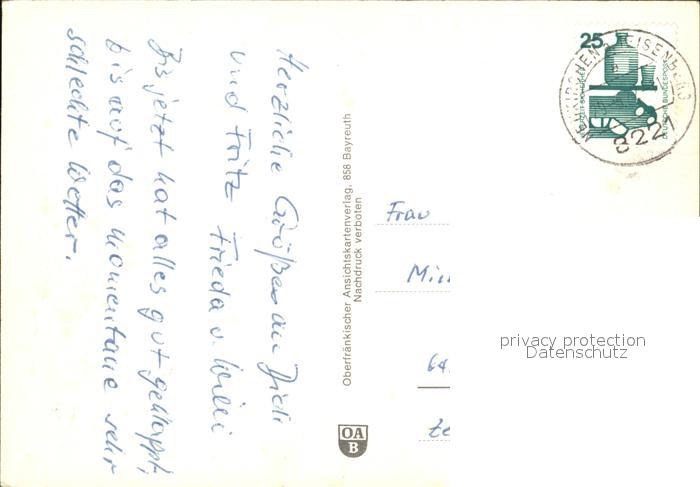 Herzliche Grüße an Dich
und Fritz Frieda u. Willi
Bis jetzt hat alles gut geklappt,
bis auf das momentane sehr
schlechte Wetter.
Oberfränkischer Ansichtskartenverlag, 858 Bayreuth
Nachdruck verboten
OA
B
25
DEUTSCHE BUNDESPOST
8221
Frau
64
privacy protection
Datenschutz